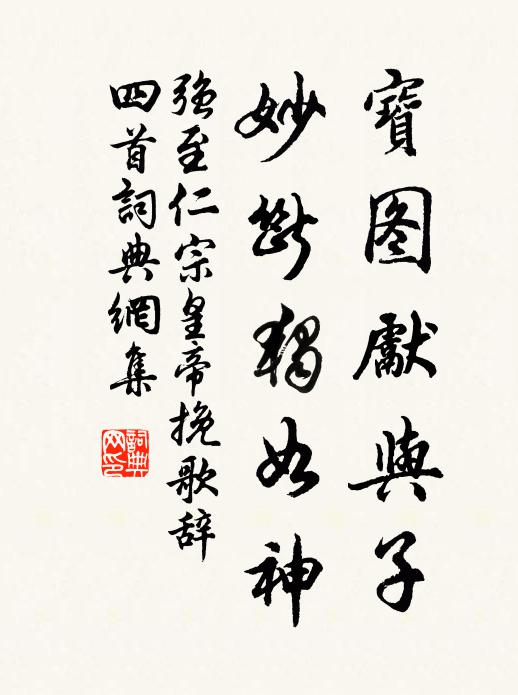 寶图獻與子
妙斷獨如神
強至仁宗皇帝挽歌辞
四首詞典網集
詞典
网印